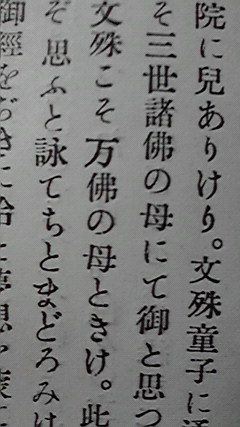 院に兒ありけり。文殊童子に
そ三世諸佛の母にて御と思つ
文殊こそ万佛の母ときけ。此
ぞ思ふと詠てちとまどろみけ
御經を